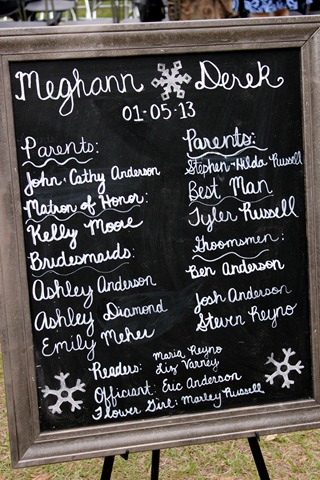 Meghann Derek
01-05-13
Parents:
John & Cathy Anderson
Matron of Honor:
Kelly Moore
Bridesmaids:
Ashley Anderson
Ashley Diamond
Emily Meher
Parents:
Stephen & Hilda Russell
Best Man
Tyler Russell
Groomsmen:
Ben Anderson
Josh Anderson
Steven Reyno
Readers: Maria Reyno
Liz Varney
Officiant: Eric Anderson
Flower Girl: Marley Russell